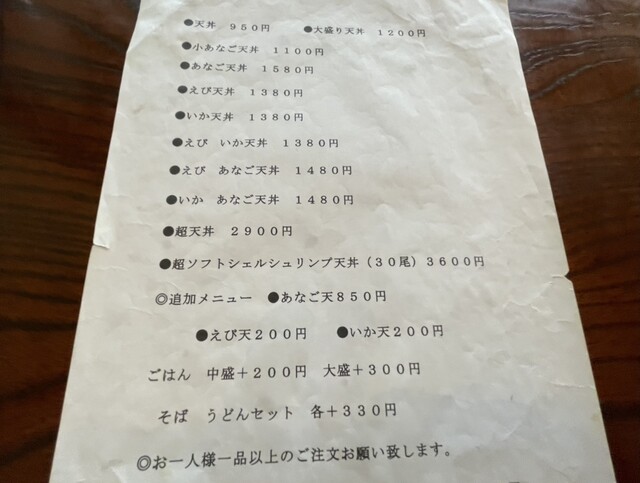 ●天丼　９５０円　　●大盛り天丼　１２００円
●小あなご天丼　１１００円
●あなご天丼　１５８０円
●えび天丼　１３８０円
●いか天丼　１３８０円
●えび　いか天丼　１３８０円
●えび　あなご天丼　１４８０円
●いか　あなご天丼　１４８０円
●超天丼　２９００円
●超ソフトシェルシュリンプ天丼（３０尾）３６００円
◎追加メニュー　●あなご天８５０円
●えび天２００円　　●いか天２００円
ごはん　中盛＋２００円　大盛＋３００円
そば　うどんセット　各＋３３０円
◎お一人様一品以上のご注文お願い致します。